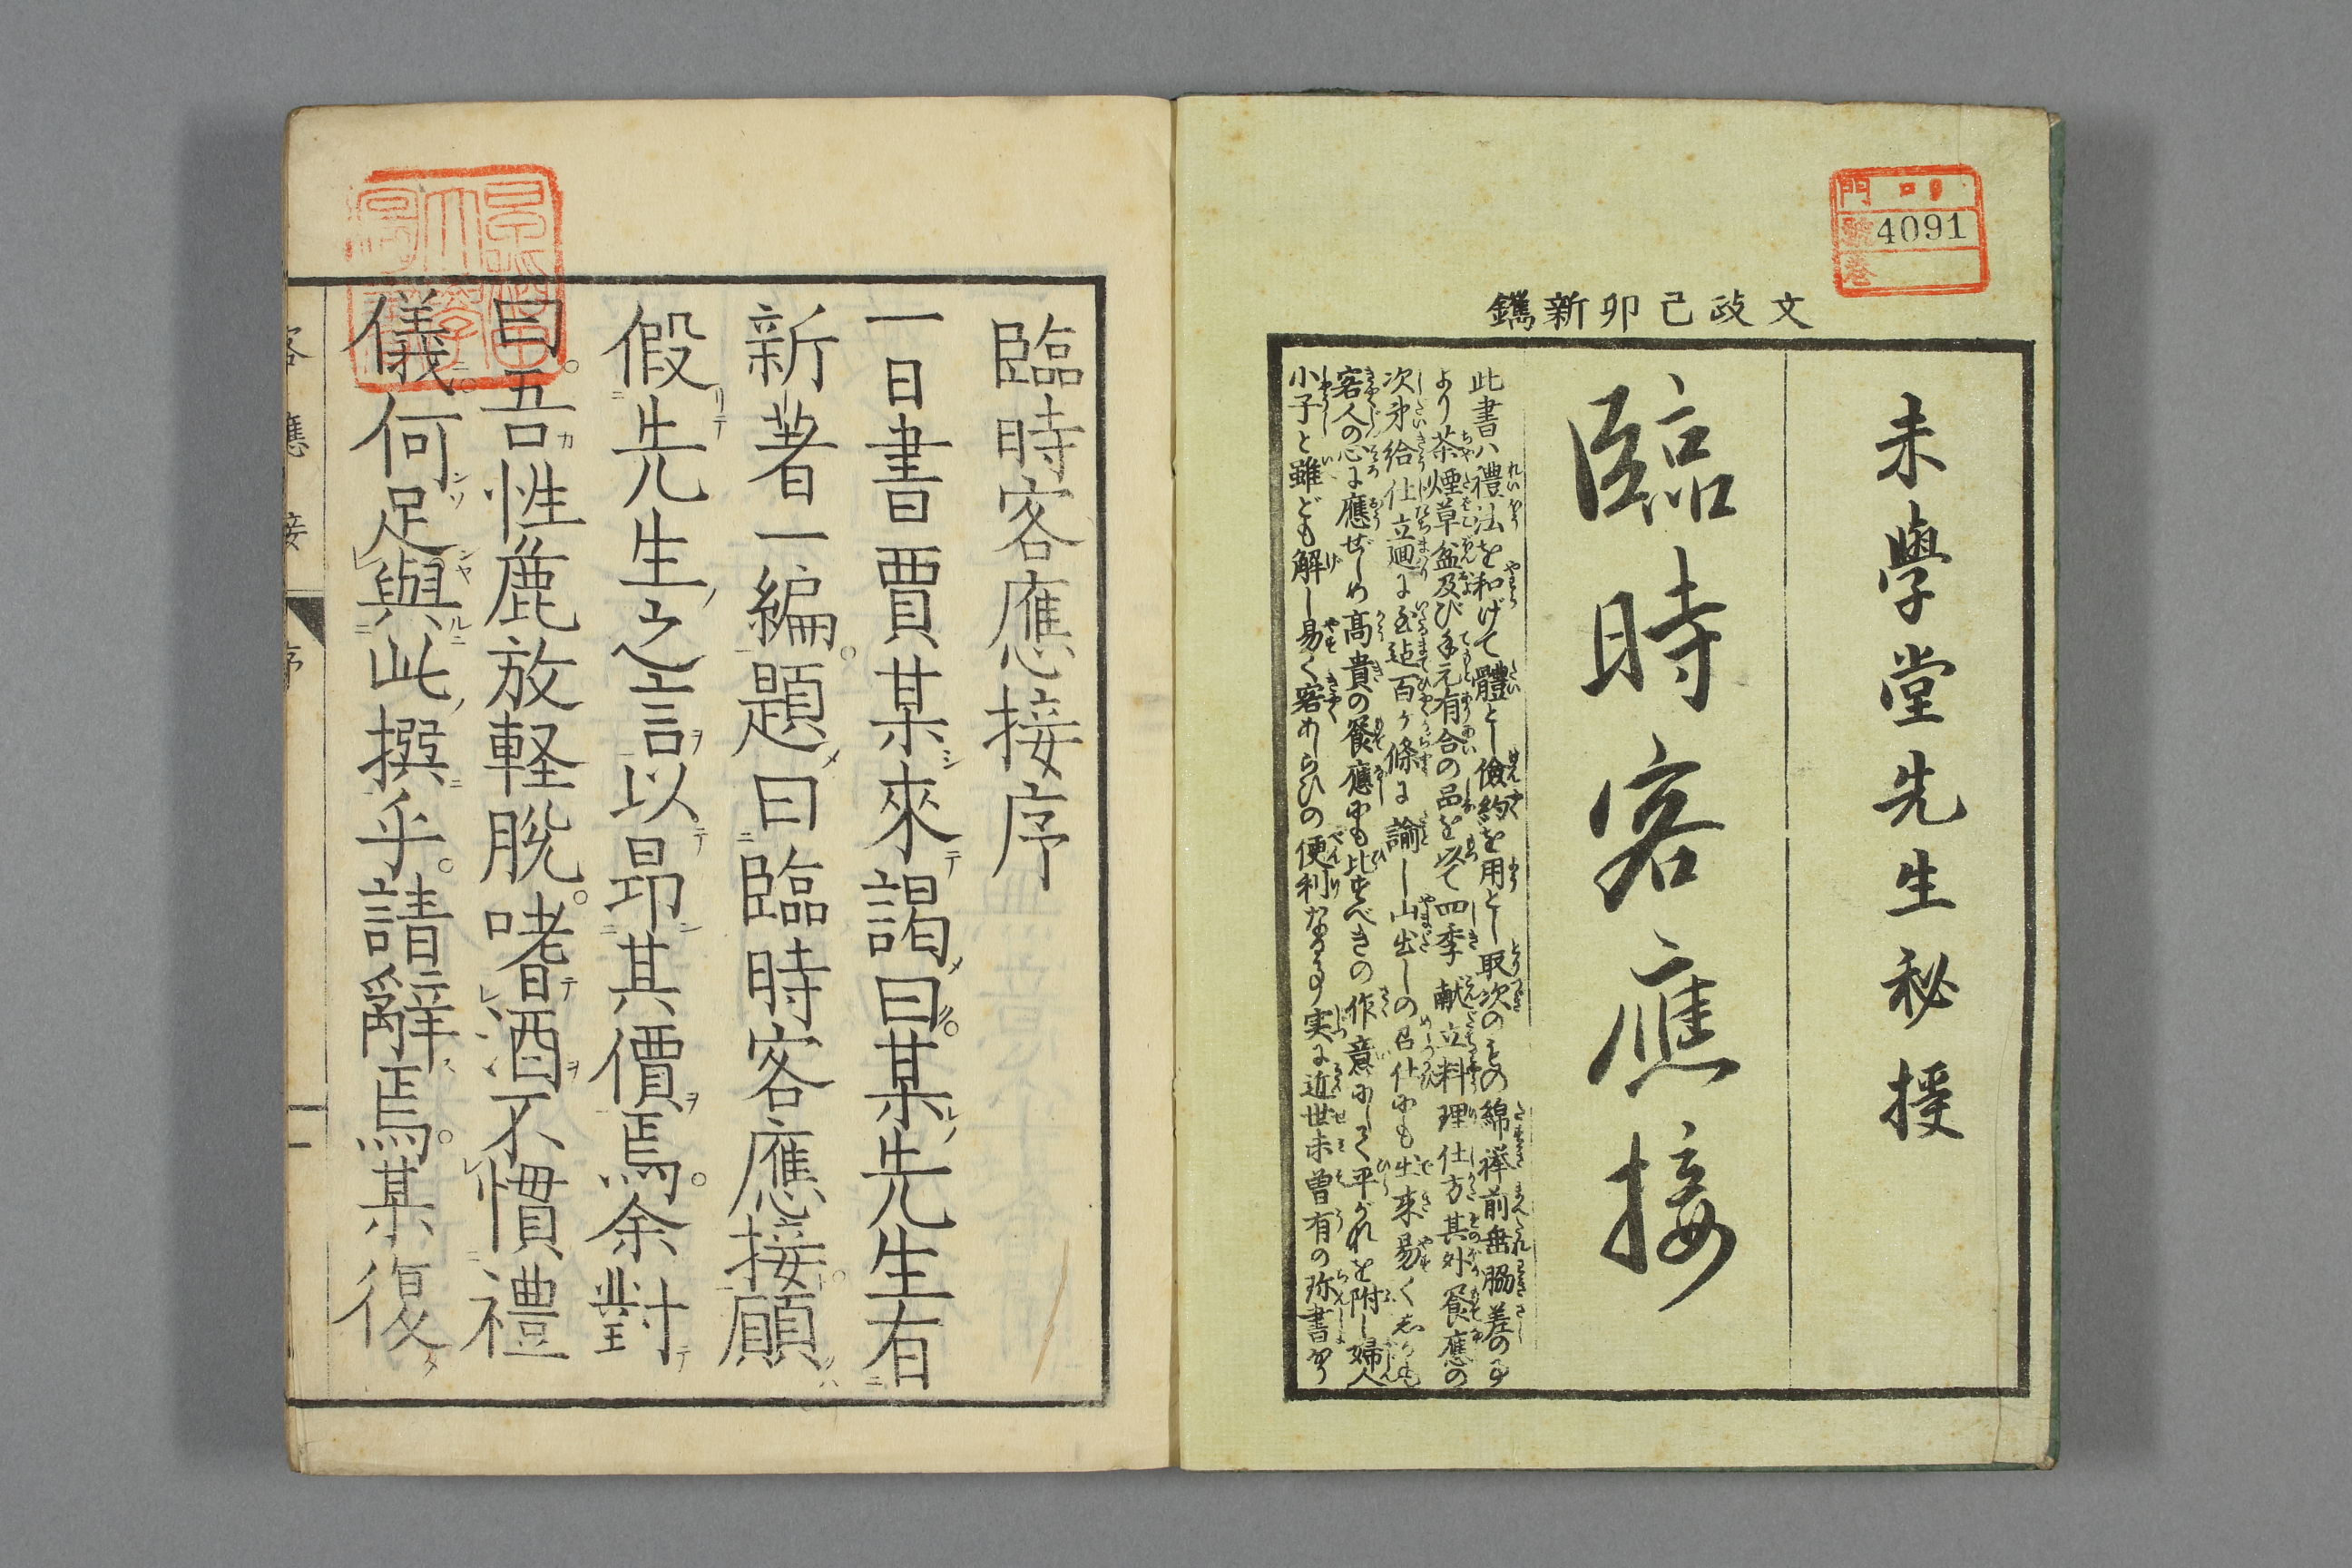 文政己卯新鐫
未學堂先生秘授
臨時客應接
此書ハ禮法を和げて體とし儉約を用とし取次のもの綿襷前垂脇差の事
より茶煙草盆及び手元有合の品を以て四季献立料理仕方其外饗應の
次第給仕立廻に至迠百ヶ條に諭し山出しの召仕にも出来易くしかも
客人の心に應ぜしめ高貴の饗應にも比すべきの作意にして平がれを附し婦人
小子と雖ども解し易く客あしらひの便利なる事実に近世未曽有の珎書なり
門
號 4091
巻
臨時客應接序
一日書賈某來謁曰某先生有
新著一編題曰臨時客應接願
假先生之言以昻其價焉余對
曰吾性麁放軽脱嗜酒不慣禮
儀何足與此撰乎請辭焉某復
客應接 序 一